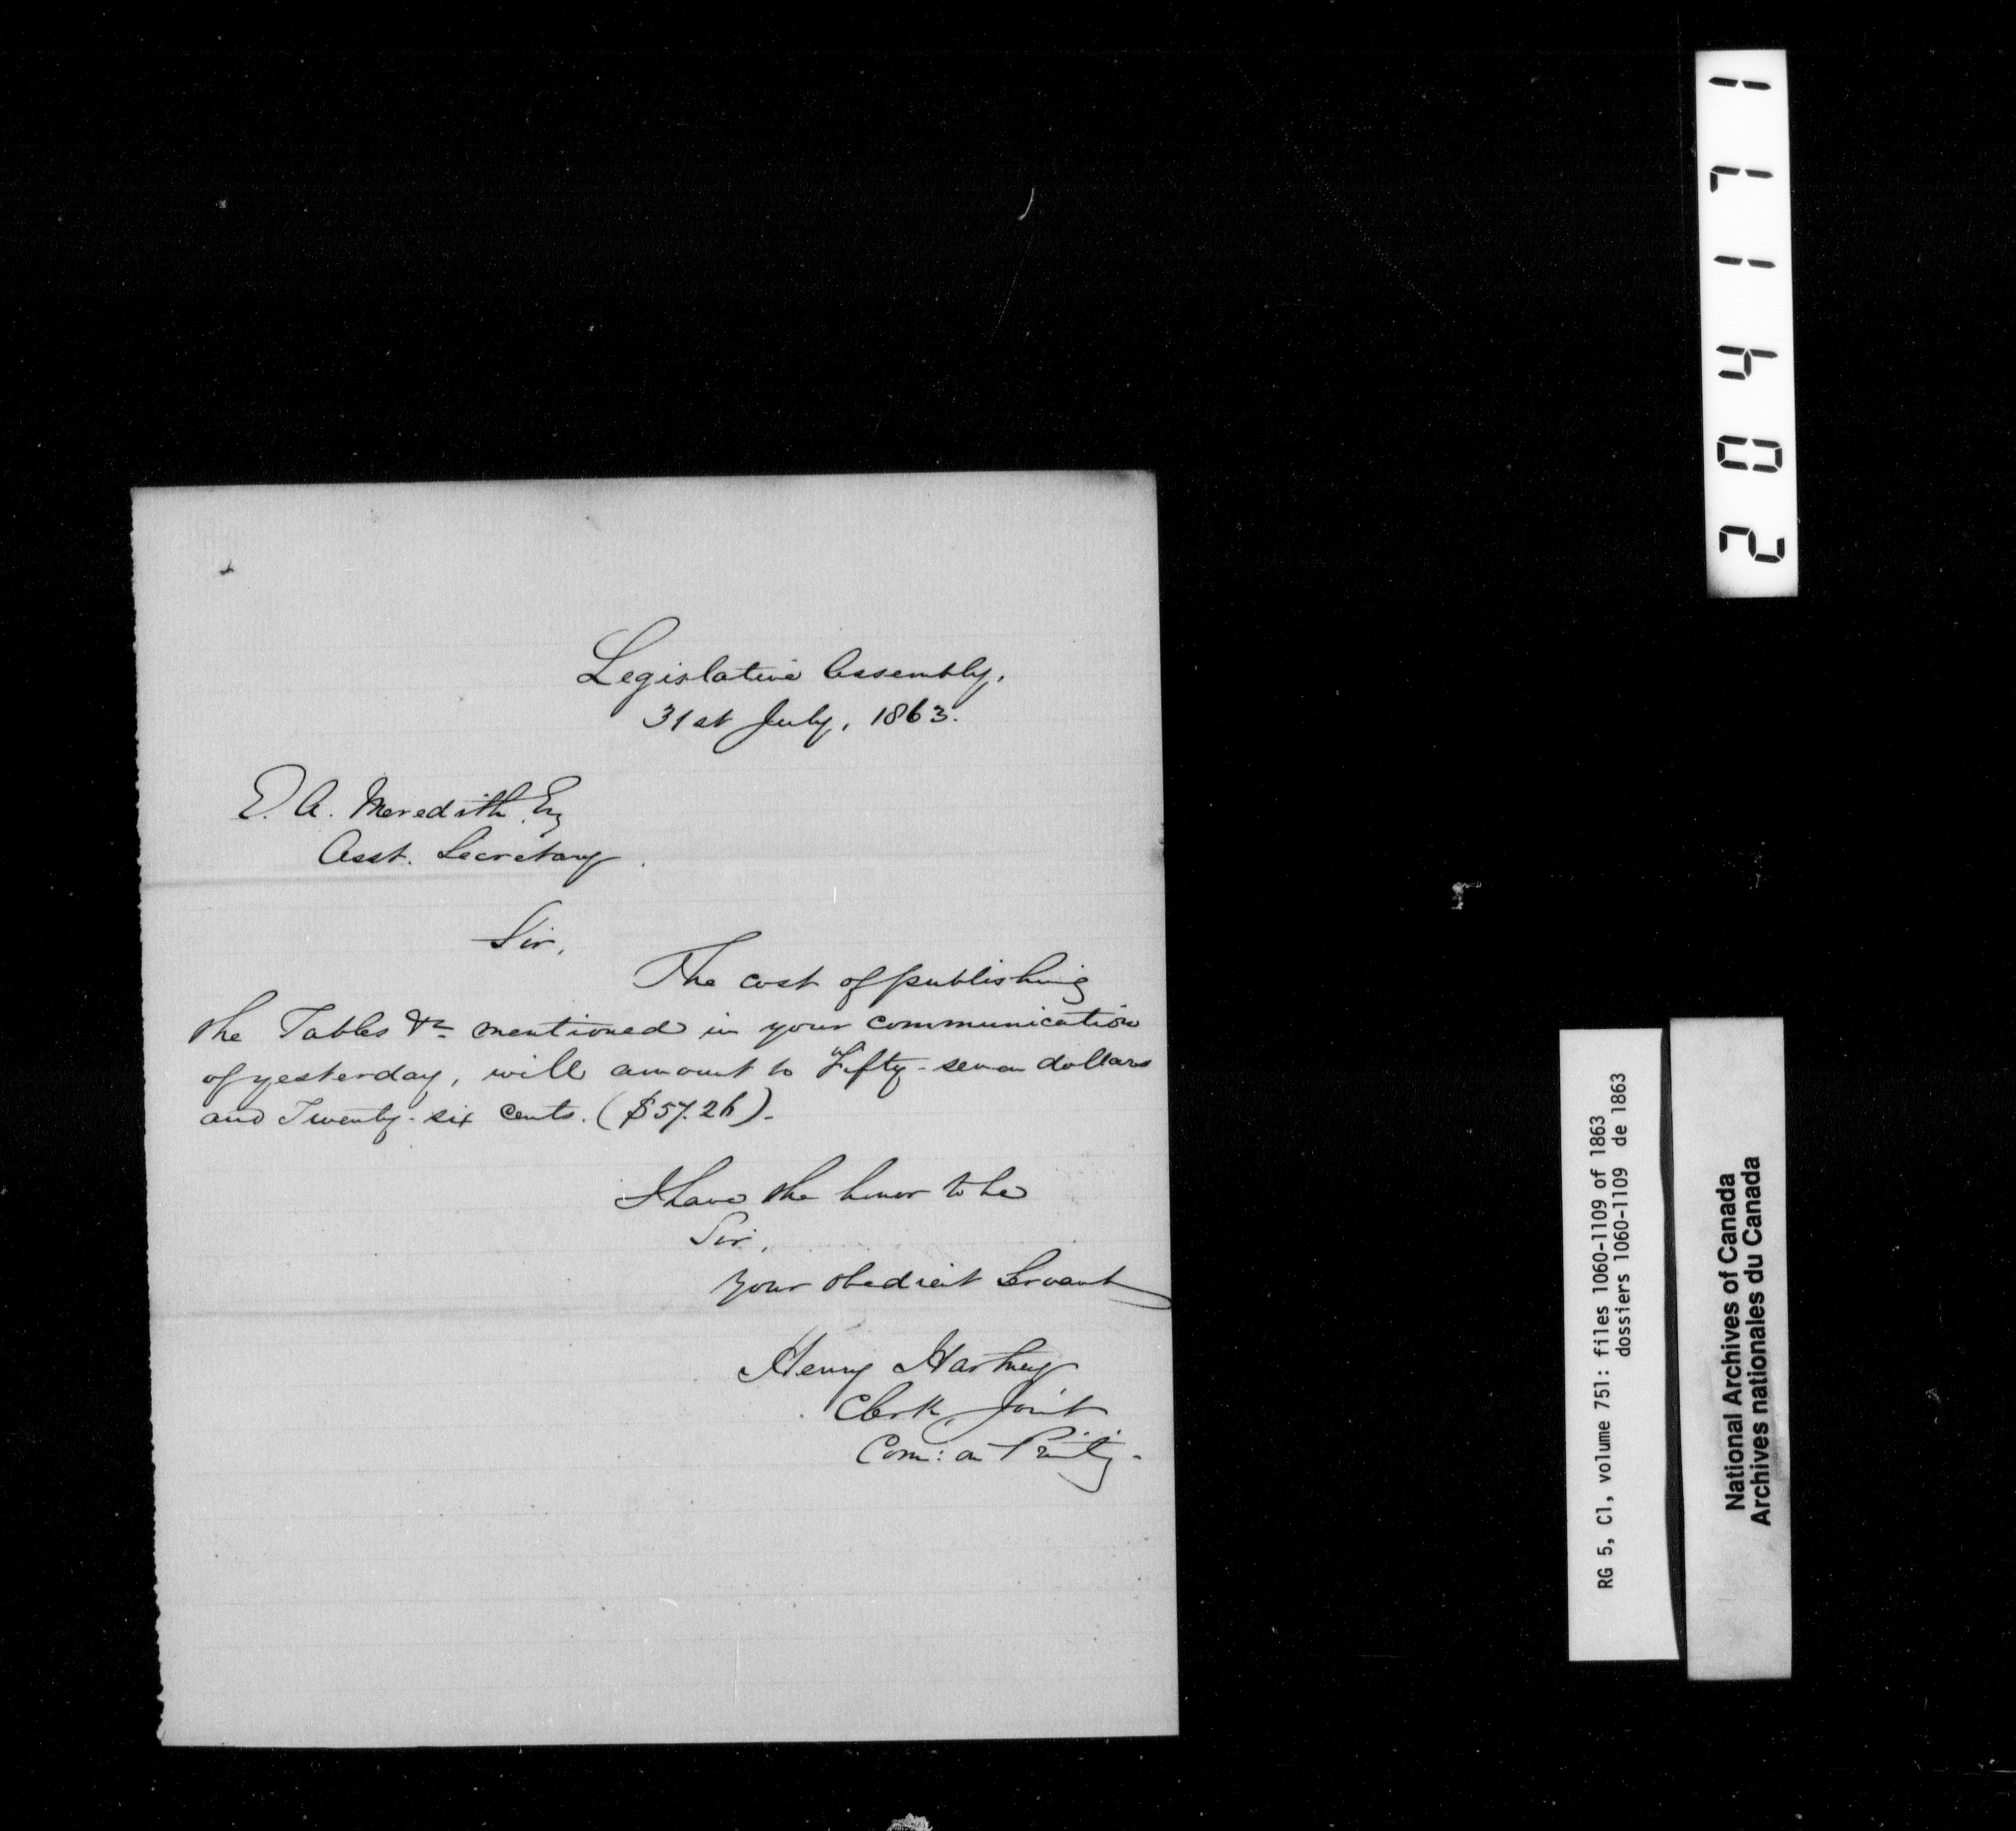 Legislative Assembly,
31st July, 1863.
E. A. Meredith, Esq
Asst. Secretary.
Sir,
The cost of publishing
the Tables &c mentioned in your communication
of yesterday, will amount to Fifty-seven dollars
and Twenty-six Cents. ($57.26).
I have the honor to be
Sir,
Your obedient Servant
Henry Hartney
Clerk, Joint
Com: on Printg.
204171
RG 5, C1, volume 751: files 1060-1109 of 1863
dossiers 1060-1109 de 1863
National Archives of Canada
Archives nationales du Canada